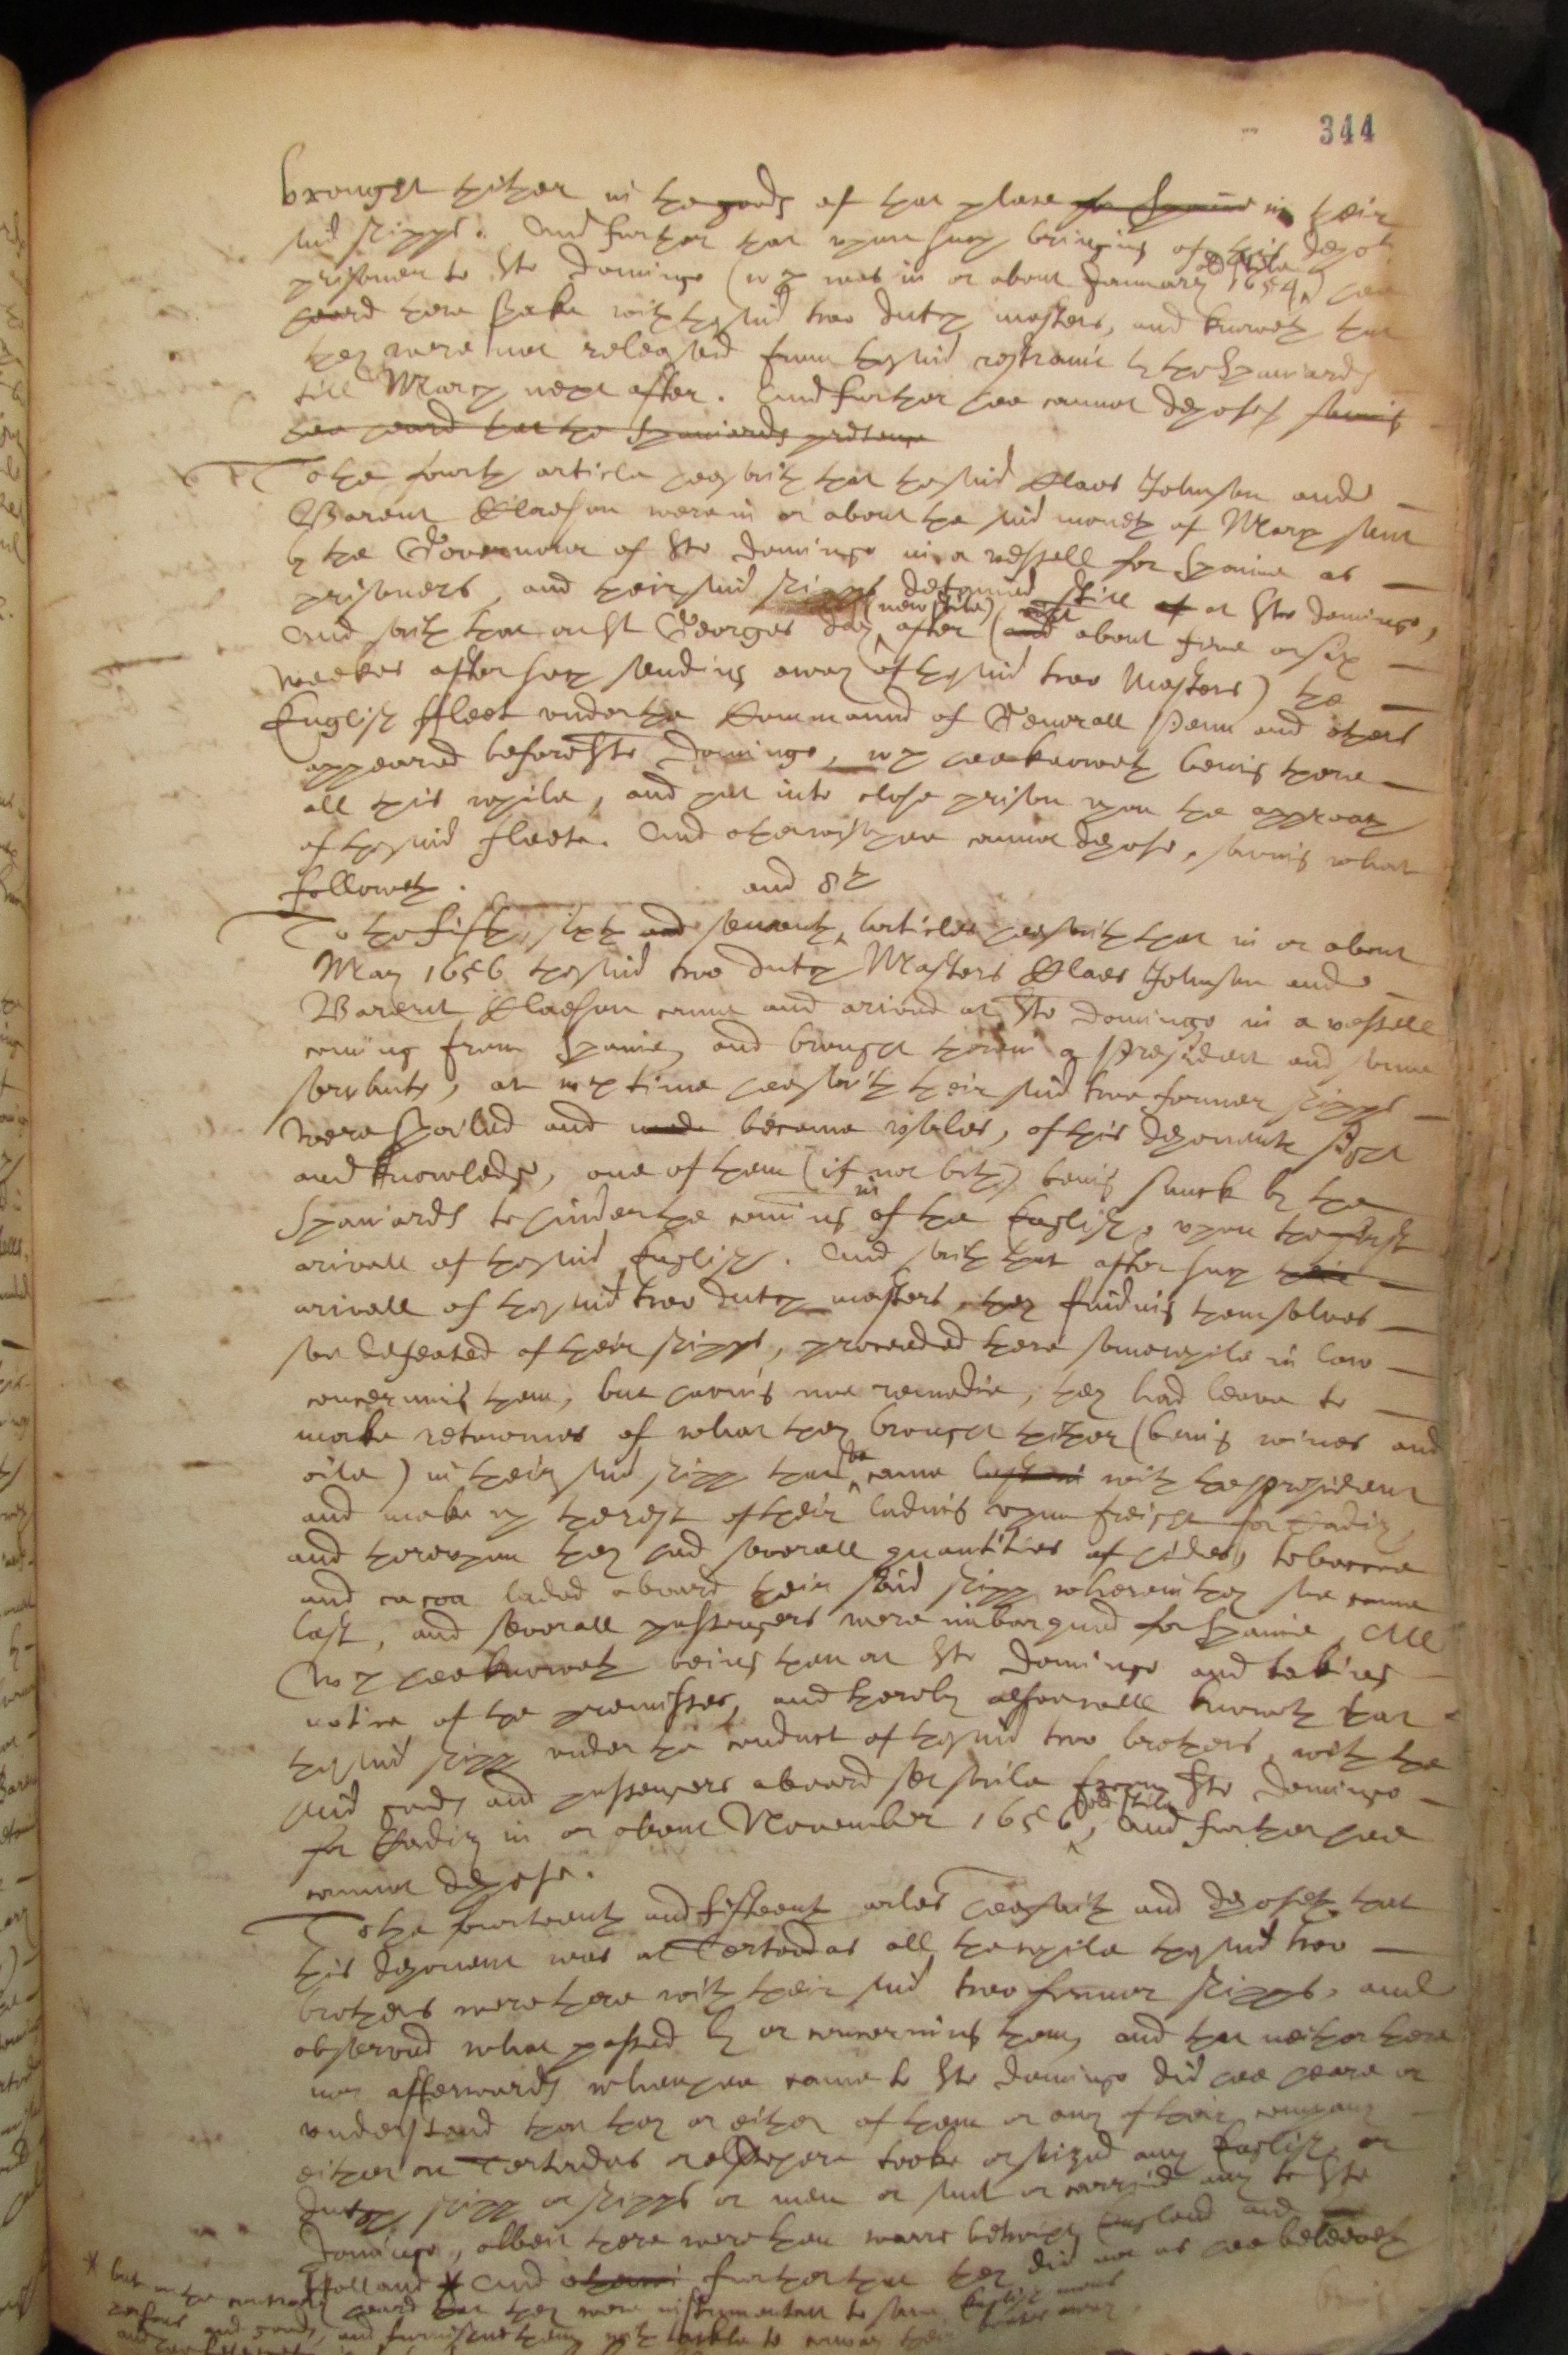 344
brought thither in the goods of that place for Spaine in their
said shipps. And further that upon such bringing of this depo^t
prisoner to S^to Domingo (w^ch was in or about January 1654 old stile) hee
heard there speake with the said two dutch masters, and knoweth that
they were not released from the said restraint by the Spaniards
till March next after. And further hee cannot depose, saving
hee heard that the Spaniards pretence
To the fourth article hee saith that the said Claes Johnson and
Barent Claeson were in or about the said moneth of March sent
by the Governour of S^to Domingo in a vessell for Spaine as
prisoners, and their said shipps detained still at at S^to Domingo,
And saith that on S^t Georges day (new stile) after (and about five or six
weekes after such sending away of the said two Masters) the
English ffleet under the Command of Generall Penn and others
appeared before S^to Domingo, w^ch hee knoweth being there
all this while, and put into close prison upon the approach
of the said fleete. And otherwise hee cannot depose, saving what
followeth.
and 8^th
To the fifth, sixth and seventh articles hee saith that in or about
May 1656 the said two dutch Masters Claes Johnson and
Barent Claeson came and arived at S^to Domingo in a vessell
coming from Spaine, and brought therein a President and some
servants, at w^ch time hee saith their said two former shipps
were spoiled and made became uselesse, of this deponents sight
and knowledge, one of them (if not both) being sunck by the
Spaniards to hinder the coming in of the English, upon the first
arivall of the said English. And saith that after such their
arivall of the said two dutch masters, they finding themselves
soe defeated of their shipps, proceeded there somewhile in law
concerning them, but having noe remedie, they had leave to
make returnes of what they brought thither (being wines and
oile) in their said shipp that the came last in with the president
and make up the rest of their lading upon freight for Cadiz,
and thereupon they had severall quantities of hides, tobaccoe
and cacoa laded aboard their said shipp wherein they soe came
last, and severall passengers were imbarqued for Spaine, All
w^ch hee knoweth being then at S^to Domingo and taking
notice of the premisses, and thereby alsoe well knoweth that
the said shipp under the conduct of the said two brothers, with the
said goods and passengers aboard set saile from S^to Domingo
for Cadiz in or about November 1656 old stile, And further hee
cannot depose.
To the fourteenth and fifteenth arles hee saith and deposeth that
this deponent was at Tortudas all the while the said two
brothers were there with their said two former shipps, and
observed what passed by or concerning them, and that neither there
nor afterwards when hee came to S^to Domingo did hee heare or
understand that they or either of them or any of their company
either at Tortudas or elsewhere tooke or seized any English or
dutch shipp or shipps or men or sent or carried any to S^to
Domingo, albeit there were then warre betwixt England and
Holland * And further that they did not as hee beleeveth
* but on the contrary heard that they were instrumentall to save English mens
persons and goods, and furnished them with to away